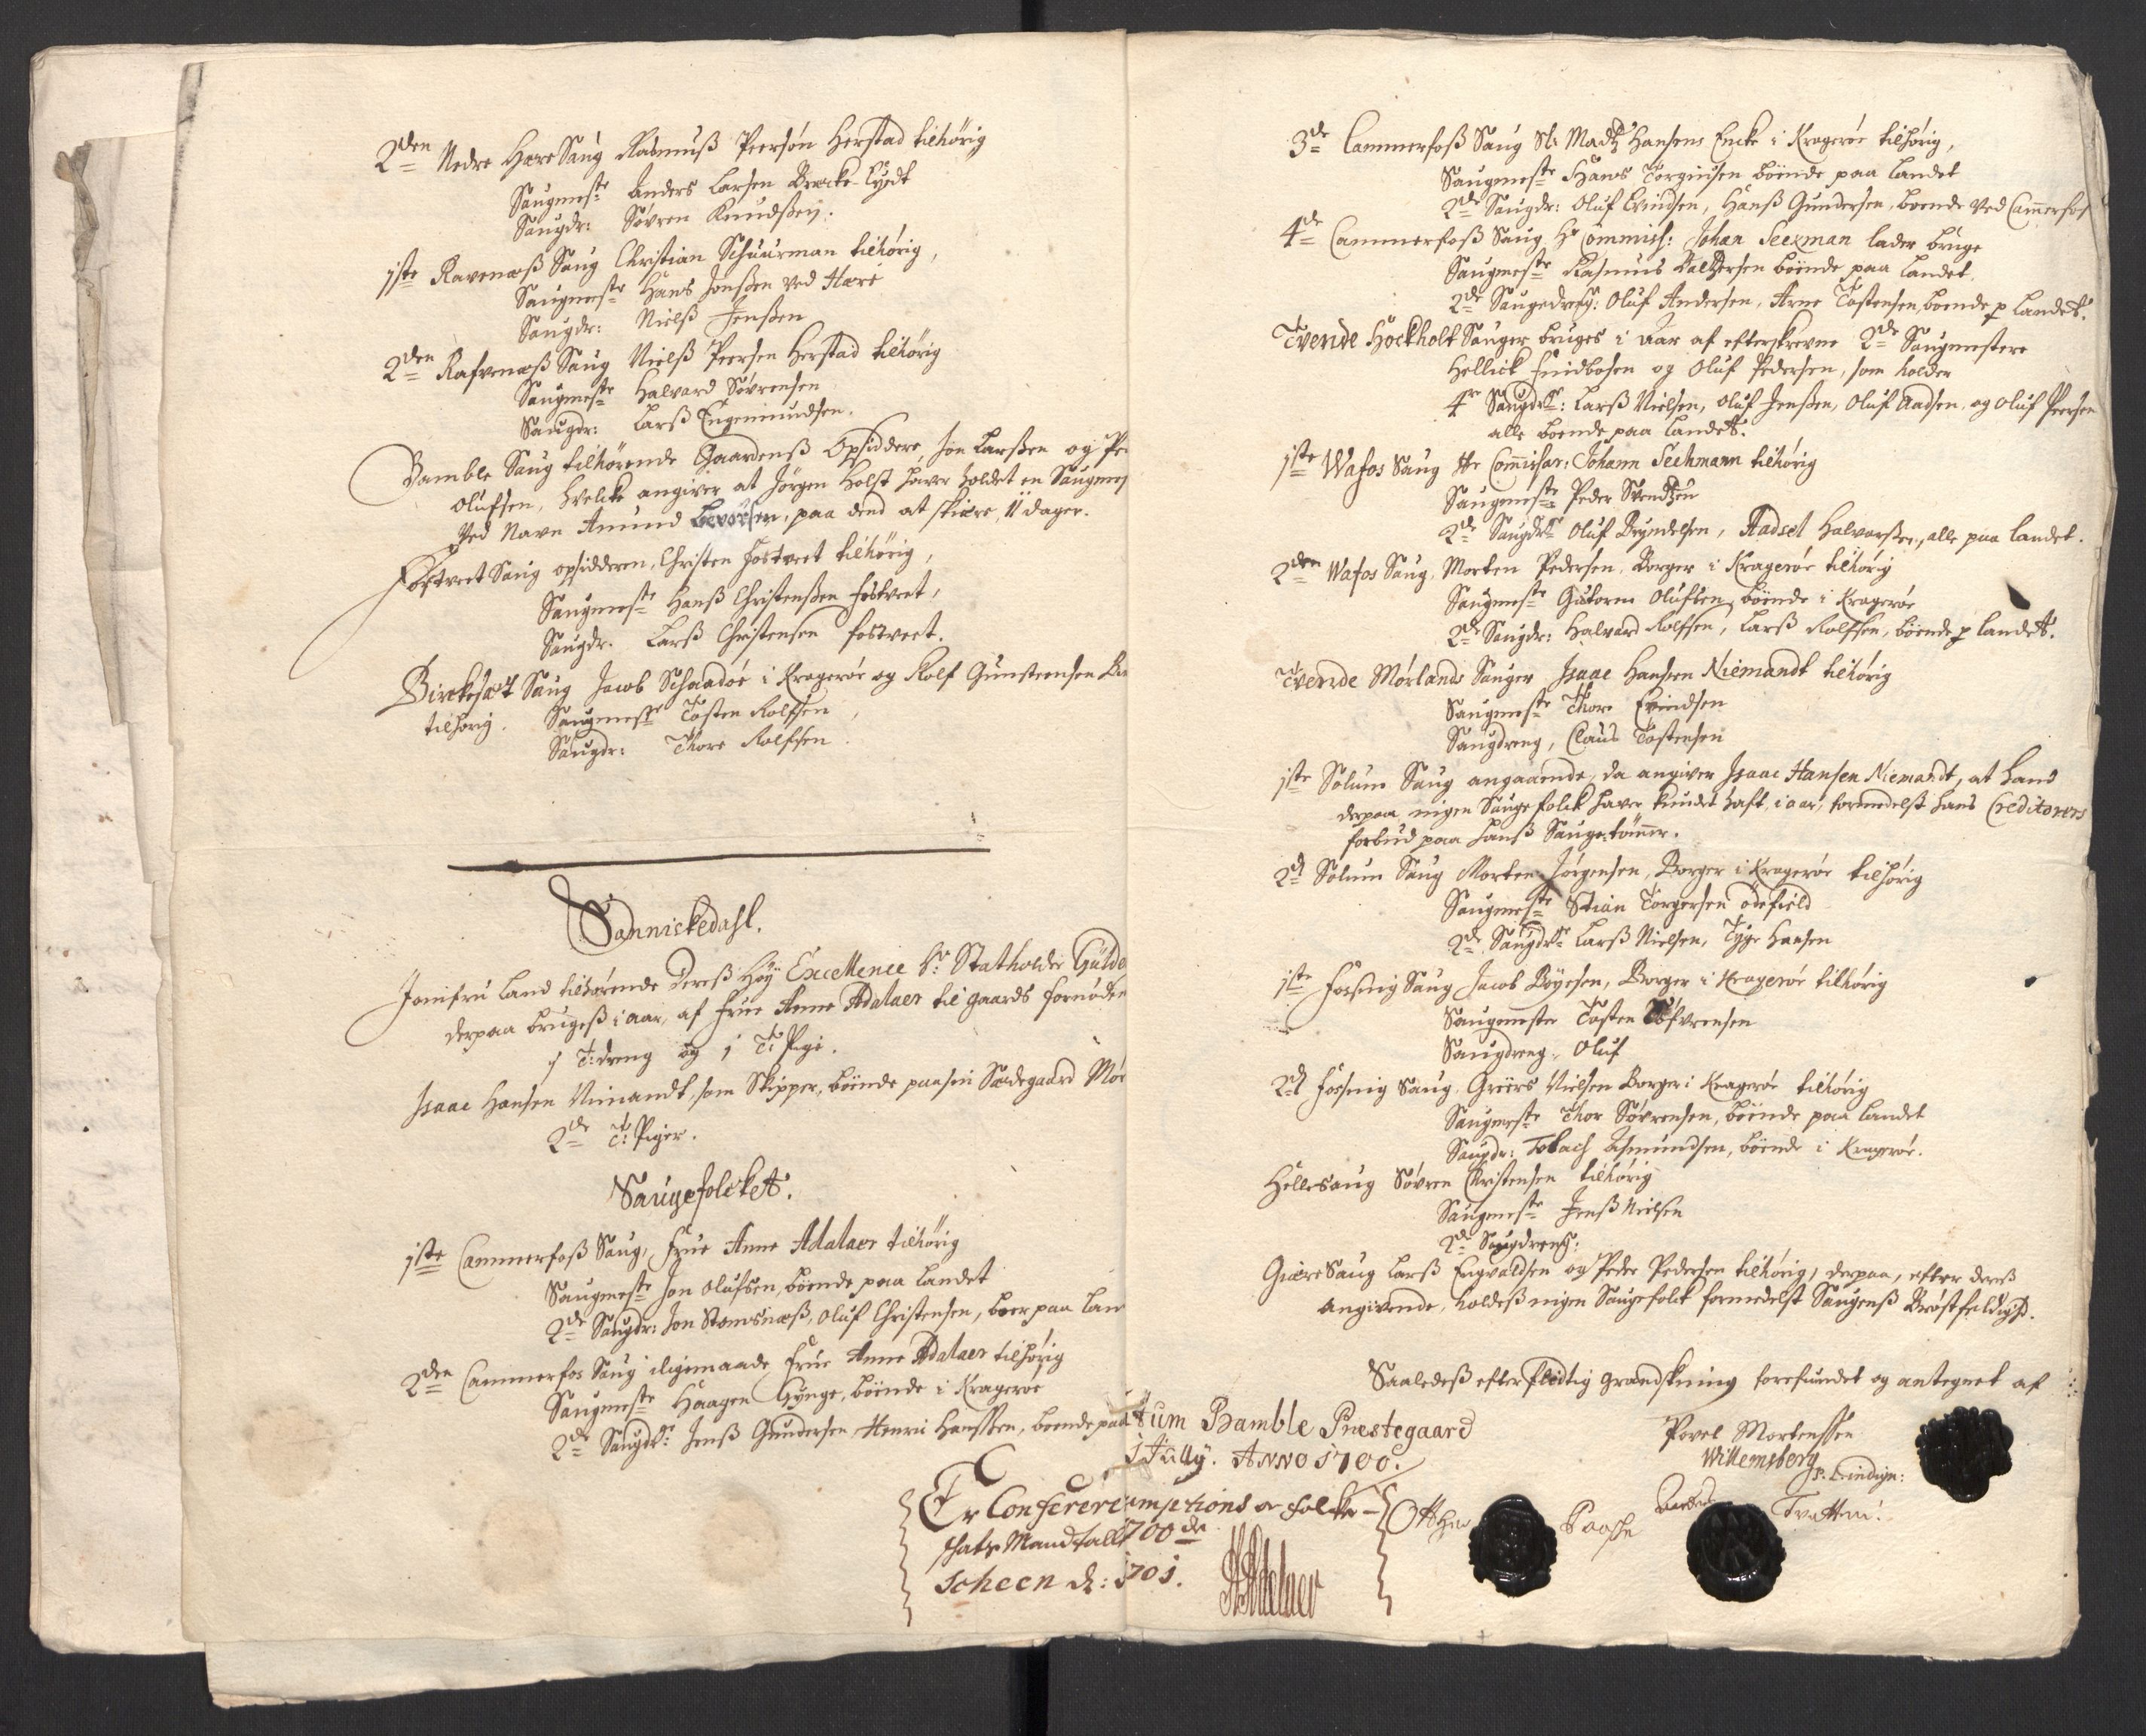 2den Nedre Herre Saug Rasmuß Peersøn Herstad tilhörig
Saugmeste Anders Larsen
Saugdr: Søvren Knudßen.
1ste Ravenæß Saug Christian Schuurman tilhörig,
Saugmeste Hans Jenßen ved Herre
Saugdr: Nielß Jenßen
2den Rafvenæß Saug Nielß Peersen Herstad tilhörig
Saugmeste Halvard Søvrensen
Saugdr: Larß Engemundsen.
Bamble Saug tilhörende Gaardenß Opsiddere, Jon Larßen og Pe
Olufsen, hvelcke angiver at Jörgen Holst haver holdet en Saugmes
Ved Navn Amund, paa dend at skiære, 11 dager.
Fostvet Saug opsidderen, Christen Fostvet tilhörig,
Saugmeste Hanß Christenßen Fostvet,
Saugdr. Larß Christensen fostveet.
Saug Jacob Schaadöe i Kragerøe og Rolf Gunstensen
tilhörig. Saugmeste Tosten Rolfsen,
Saugdr: Thore Rolfsen.
Sannickedahl.
Jomfru Land tilhørende Dereß Høy Excellence Hr Statholder Gülde
derpaa brugeß i aar, af Frue Anne Adalaer til gaards fornøden
1 T: dreng og 1 T: Pige.
Isaac Hansen Nimandt, som Skipper, böende paa sin Sædegaard Mör
2de T: Piger.
Saugefolcket.
1ste Cammerfoß Saug, Frue Anne Adalaer tilhörig
Saugmeste Jon Olufsen, böende paa Landet
2de Saugdr: Jon Stomsnæß, Oluf Christensen, boer paa Lan
2den Cammerfos Saug iligemaade Frue Anne Adalaer tilhörig
Saugmeste Haagen Gynge, böende i Kragerøe
2de Saugdr: Jenß Gundersen Henric Hanssen, boende paa
3de Cammerfoß Saug Sl: Madtz Hansens Encke i Kragerøe tilhörig,
Saugmeste Hans Torgiusen böende paa Landet
2de Saugdr: Oluf Evindsen, Hanß Gundersen, boende ved Camerfos
4de Cammerfoß Saug Hr Commiss: Johan Seexman lader bruge
Saugmeste Rasmus Baltzersen böende paa Landet
2de Saugedreng: Oluf Andersen, Arne Tostensen, boende p Landet.
Tvende Hockholt Sauger bruges i Aar af efterskrevne 2de Saugmestere
Hellick Findbosen og Oluf Pedersen, som holder
4re Saugdr: Larß Nielsen, Oluf Jenßen, Oluf Aadsen, og Oluf Peersen
alle boende paa Landet.
1ste Wafos Saug Hr Commissar: Johann Seehmann tilhörig
Saugmeste Peder Svendtzen
2de Saugdr Oluf Bryndelsen, Aadset Halvorßen, alle paa Landet.
2den Wafos Saug, Morten Pedersen, Borger i Kragerøe tilhörig
Saugmeste Gutorm Olufsen, böende i Kragerøe
2de Saugdr: Halvard Rolfsen, Larß Rolfsen, böende p Landet.
Tvende Mørlands Sauger Isaac Hansen Niemandt tilhörig
Saugmeste Thore Evindsen
Saugdreng, Claus Tostensen
1ste Solum Saug angaaende, da angiver Isaac Hansen Niemandt, at hand
derpaa ingen Saugefolck haver kundet haft, i aar, formedelst hans Creditorers
forbud paa hanß Saugetömmer.
2d Solum Saug Morten Jörgensen, Borger i Kragerøe tilhörig
Saugmeste Stian Torgersen ödefield
2de Saugdr Larß Nielsen, Tyge Hansen
1ste Fossing Saug Jacob Böyesen, Borger i Kragerøe tilhörig
Saugmester Tosten Söfvrensen
Saugdreng, Oluf
2d Fossing Saug, Greers Nielsen Borger i Kragerøe tilhörig
Saugmeste Thor Søvrensen, böende paa Landet
Saugdr: Asmundsen, böende i Kragerøe.
Hellesaug Søvren Christensen tilhörig
Saugmeste Jenß Nielsen
2de Saugdreng:
Giære Saug Larß Engvaldsen og Peder Pedersen tilhörig, derpaa, efter dereß
angivende, holdeß ingen Saugefolck formedelst Saugenß Bröstfeldighd.
Saaledeß efter flidtig grandskning forefundet og antegnet af
tum Bamble Præstegaard
1 July. ANNO 1700.
Povel Mortenssen
Willemsberg
Otthe Paasche
Er Confereret mptions og folcke-
skatz Mandtall 700de
Scheen d: 1701.
HAdelaer